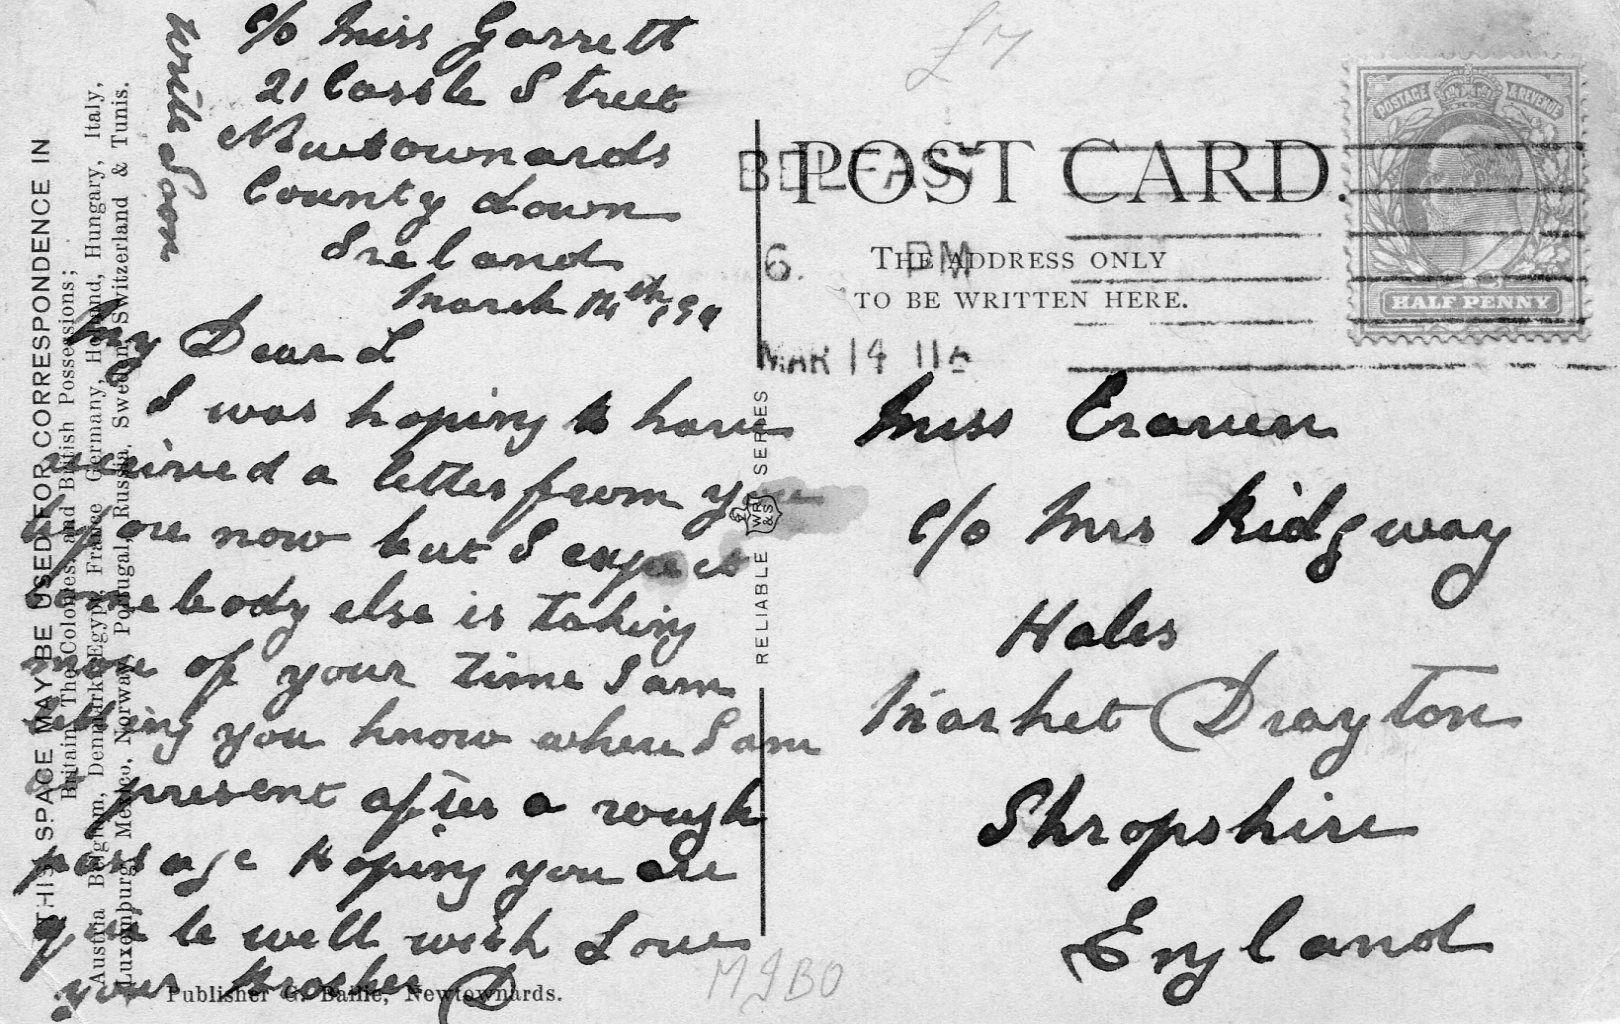 Write Soon
c/o Miss Garrett
21 Castle Street
Newtownards
County Down
Ireland
March 14th
My Dear L
I was hoping to have
received a letter from you
before now but I expect
some body else is taking
more of your time I am
letting you know where I am
at present after a rough
passage Hoping you are
quite well with Love
your Brother D
Publisher G. Bailie, Newtownards.
THIS SPACE MAY BE USED FOR CORRESPONDENCE IN
Britain The Colonies, and British Possessions;
Austria Belgium, Denmark Egypt, France Germany, Holland, Hungary, Italy,
Luxemburg, Mexico, Norway, Portugal, Russia, Sweden, Switzerland & Tunis.
RELIABLE WR&S SERIES
POST CARD.
THE ADDRESS ONLY
TO BE WRITTEN HERE.
BELFAST
6. PM
MAR 14 11
POSTAGE & REVENUE
HALF PENNY
Miss Craven
c/o Mrs Ridgway
Hales
Market Drayton
Shropshire
England